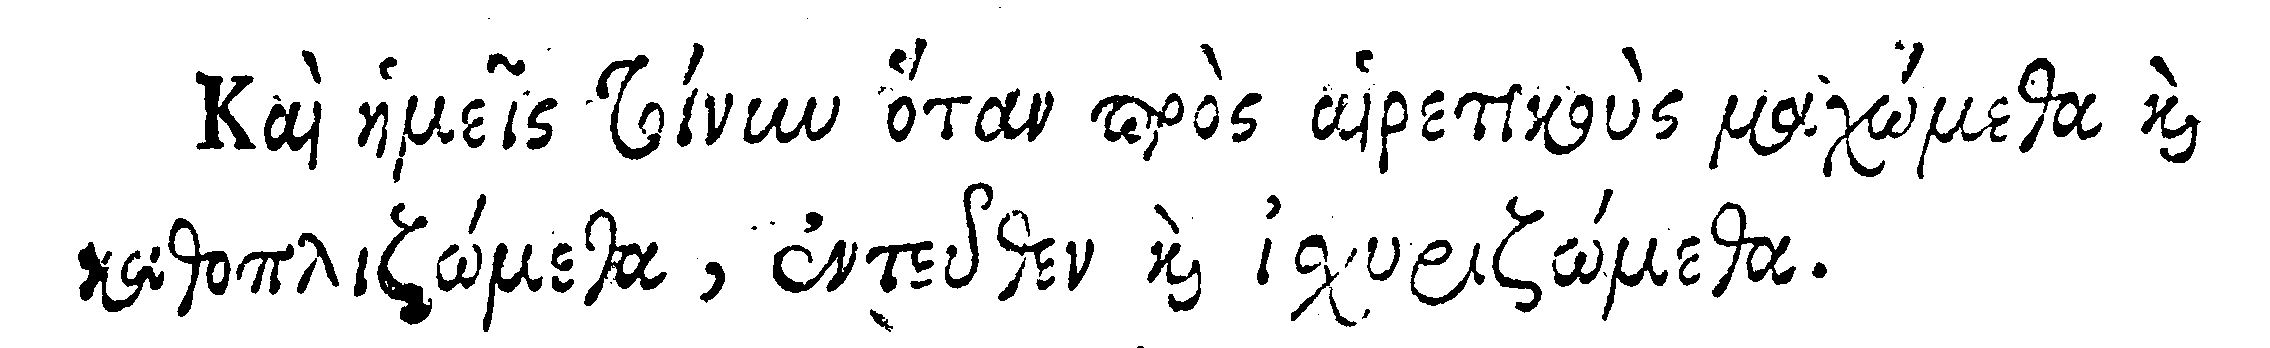 Καὶ ἡμεῖς τοίνυν ὅταν πρὸς αἱρετικοὺς μαχώμεθα καὶ
καθοπλιζώμεθα, ἐντεῦθεν καὶ ἰσχυριζώμεθα.